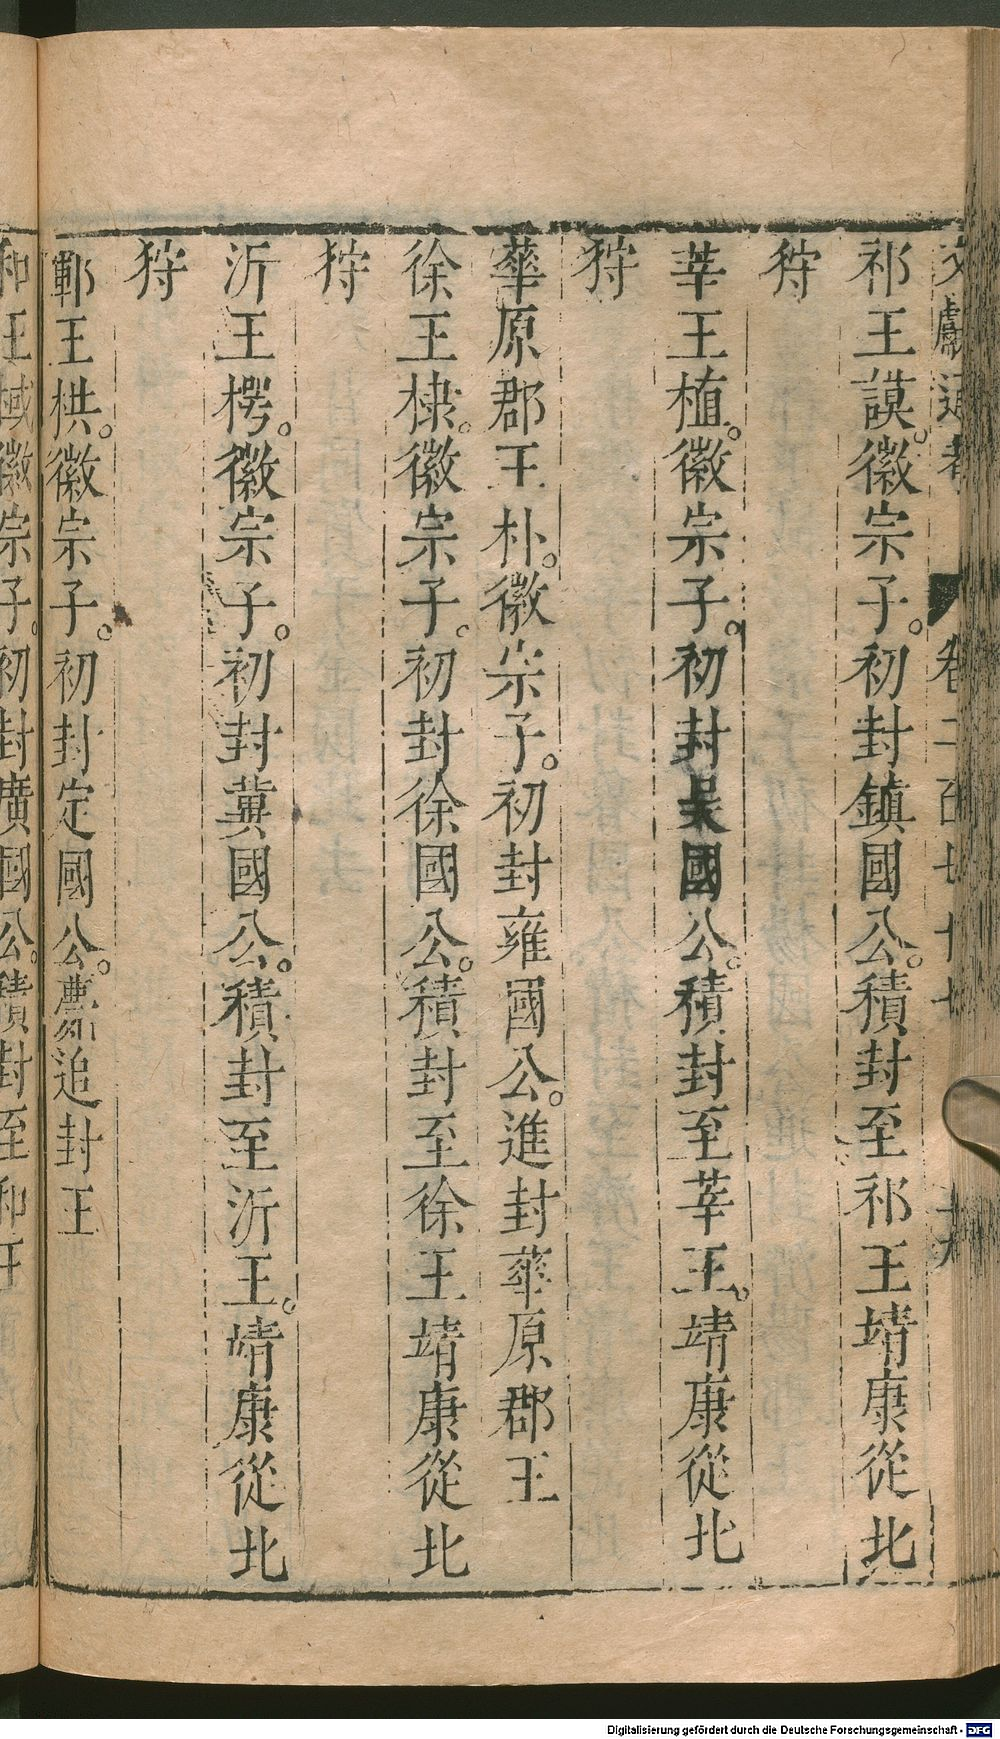 文獻通考 卷二百七十七 十九
祁王謨。徽宗子。初封鎮國公。積封至祁王靖康從北
狩
莘王植。徽宗子。初封吴國公。積封至莘王。靖康從北
狩
華原郡王朴。徽宗子。初封雍國公。進封華原郡王
徐王棣。徽宗子。初封徐國公。積封至徐王靖康從北
狩
沂王㮙。徽宗子。初封冀國公。積封至沂王。靖康從北
狩
鄆王栱。徽宗子。初封定國公。薨追封王
和王栻徽宗子。初封廣國公。積封至和王
Digitalisierung gefördert durch die Deutsche Forschungsgemeinschaft - DFG